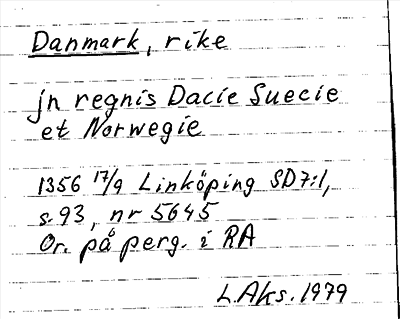 Danmark, rike
jn regnis Dacie Suecie
et Norwegie
1356 17/9 Linköping SD7:1,
s. 93, nr 5645
Or. på perg. i RA
L.Aks. 1979